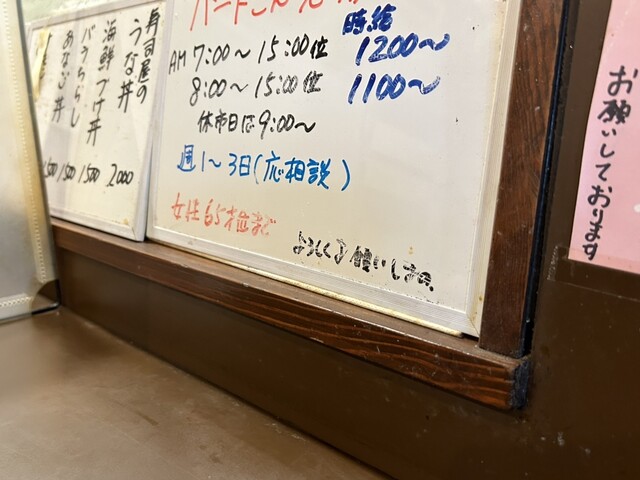 寿司屋の
うな丼 2000
海鮮づけ丼 1500
バラちらし 1500
あなご丼
時給
AM 7:00〜15:00位 1200〜
8:00〜15:00位 1100〜
休市日は9:00〜
週1〜3日(応相談)
女性65才位まで
よろしくお願いします。
お願いしております